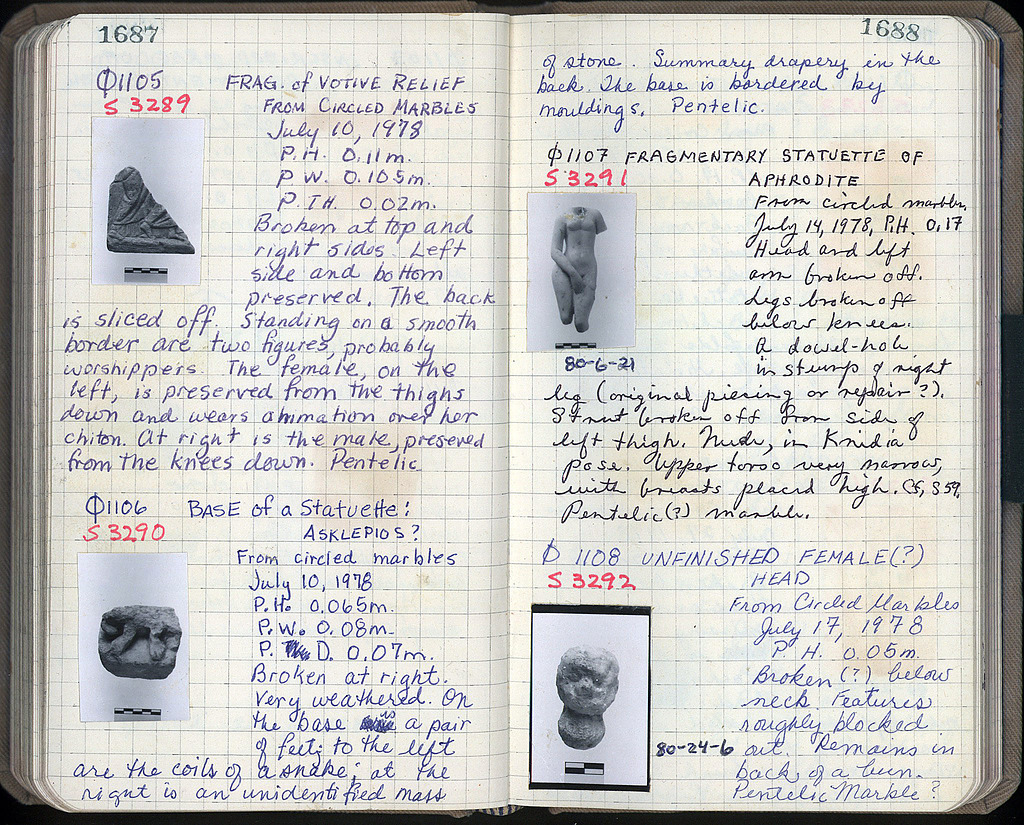 1687
Φ1105 FRAG. of VOTIVE RELIEF
S 3289 FROM CIRCLED MARBLES
July 10, 1978
P.H. 0.11m.
P W. 0.105m.
P. TH. 0.02m.
Broken at top and
right sides. Left
side and bottom
preserved. The back
is sliced off. Standing on a smooth
border are two figures, probably
worshippers. The female, on the
left, is preserved from the thighs
down and wears a himation over her
chiton. At right is the male, preseved
from the knees down. Pentelic
Φ1106 BASE of a Statuette:
S 3290 ASKLEPIOS?
From circled marbles
July 10, 1978
P.H. 0.065m.
P.W. 0.08m.
P. D. 0.07m.
Broken at right.
Very weathered. On
the base is a pair
of feet; to the left
are the coils of a snake; at the
right is an unidentified mass
1688
of stone. Summary drapery in the
back. The base is bordered by
mouldings. Pentelic.
Φ1107 FRAGMENTARY STATUETTE OF
S 3291 APHRODITE
From circled marbles,
July 14, 1978, P.H. 0.17
Head and left
arm broken off.
Legs broken off
below knees.
A dowel-hole
80-6-21 in stump of right
leg (original piecing or repair?).
Strut broken off from side of
left thigh. Nude, in Knidia
pose. Upper torso very narrow,
with breasts placed high. Cf, S 59,
Pentelic(?) marble.
Φ 1108 UNFINISHED FEMALE(?)
S 3292 HEAD
From Circled Marbles
July 17, 1978
P H. 0.05m.
Broken (?) below
neck Features
roughly blocked
80-24-6 out. Remains in
back of a bun.
Pentelic Marble?